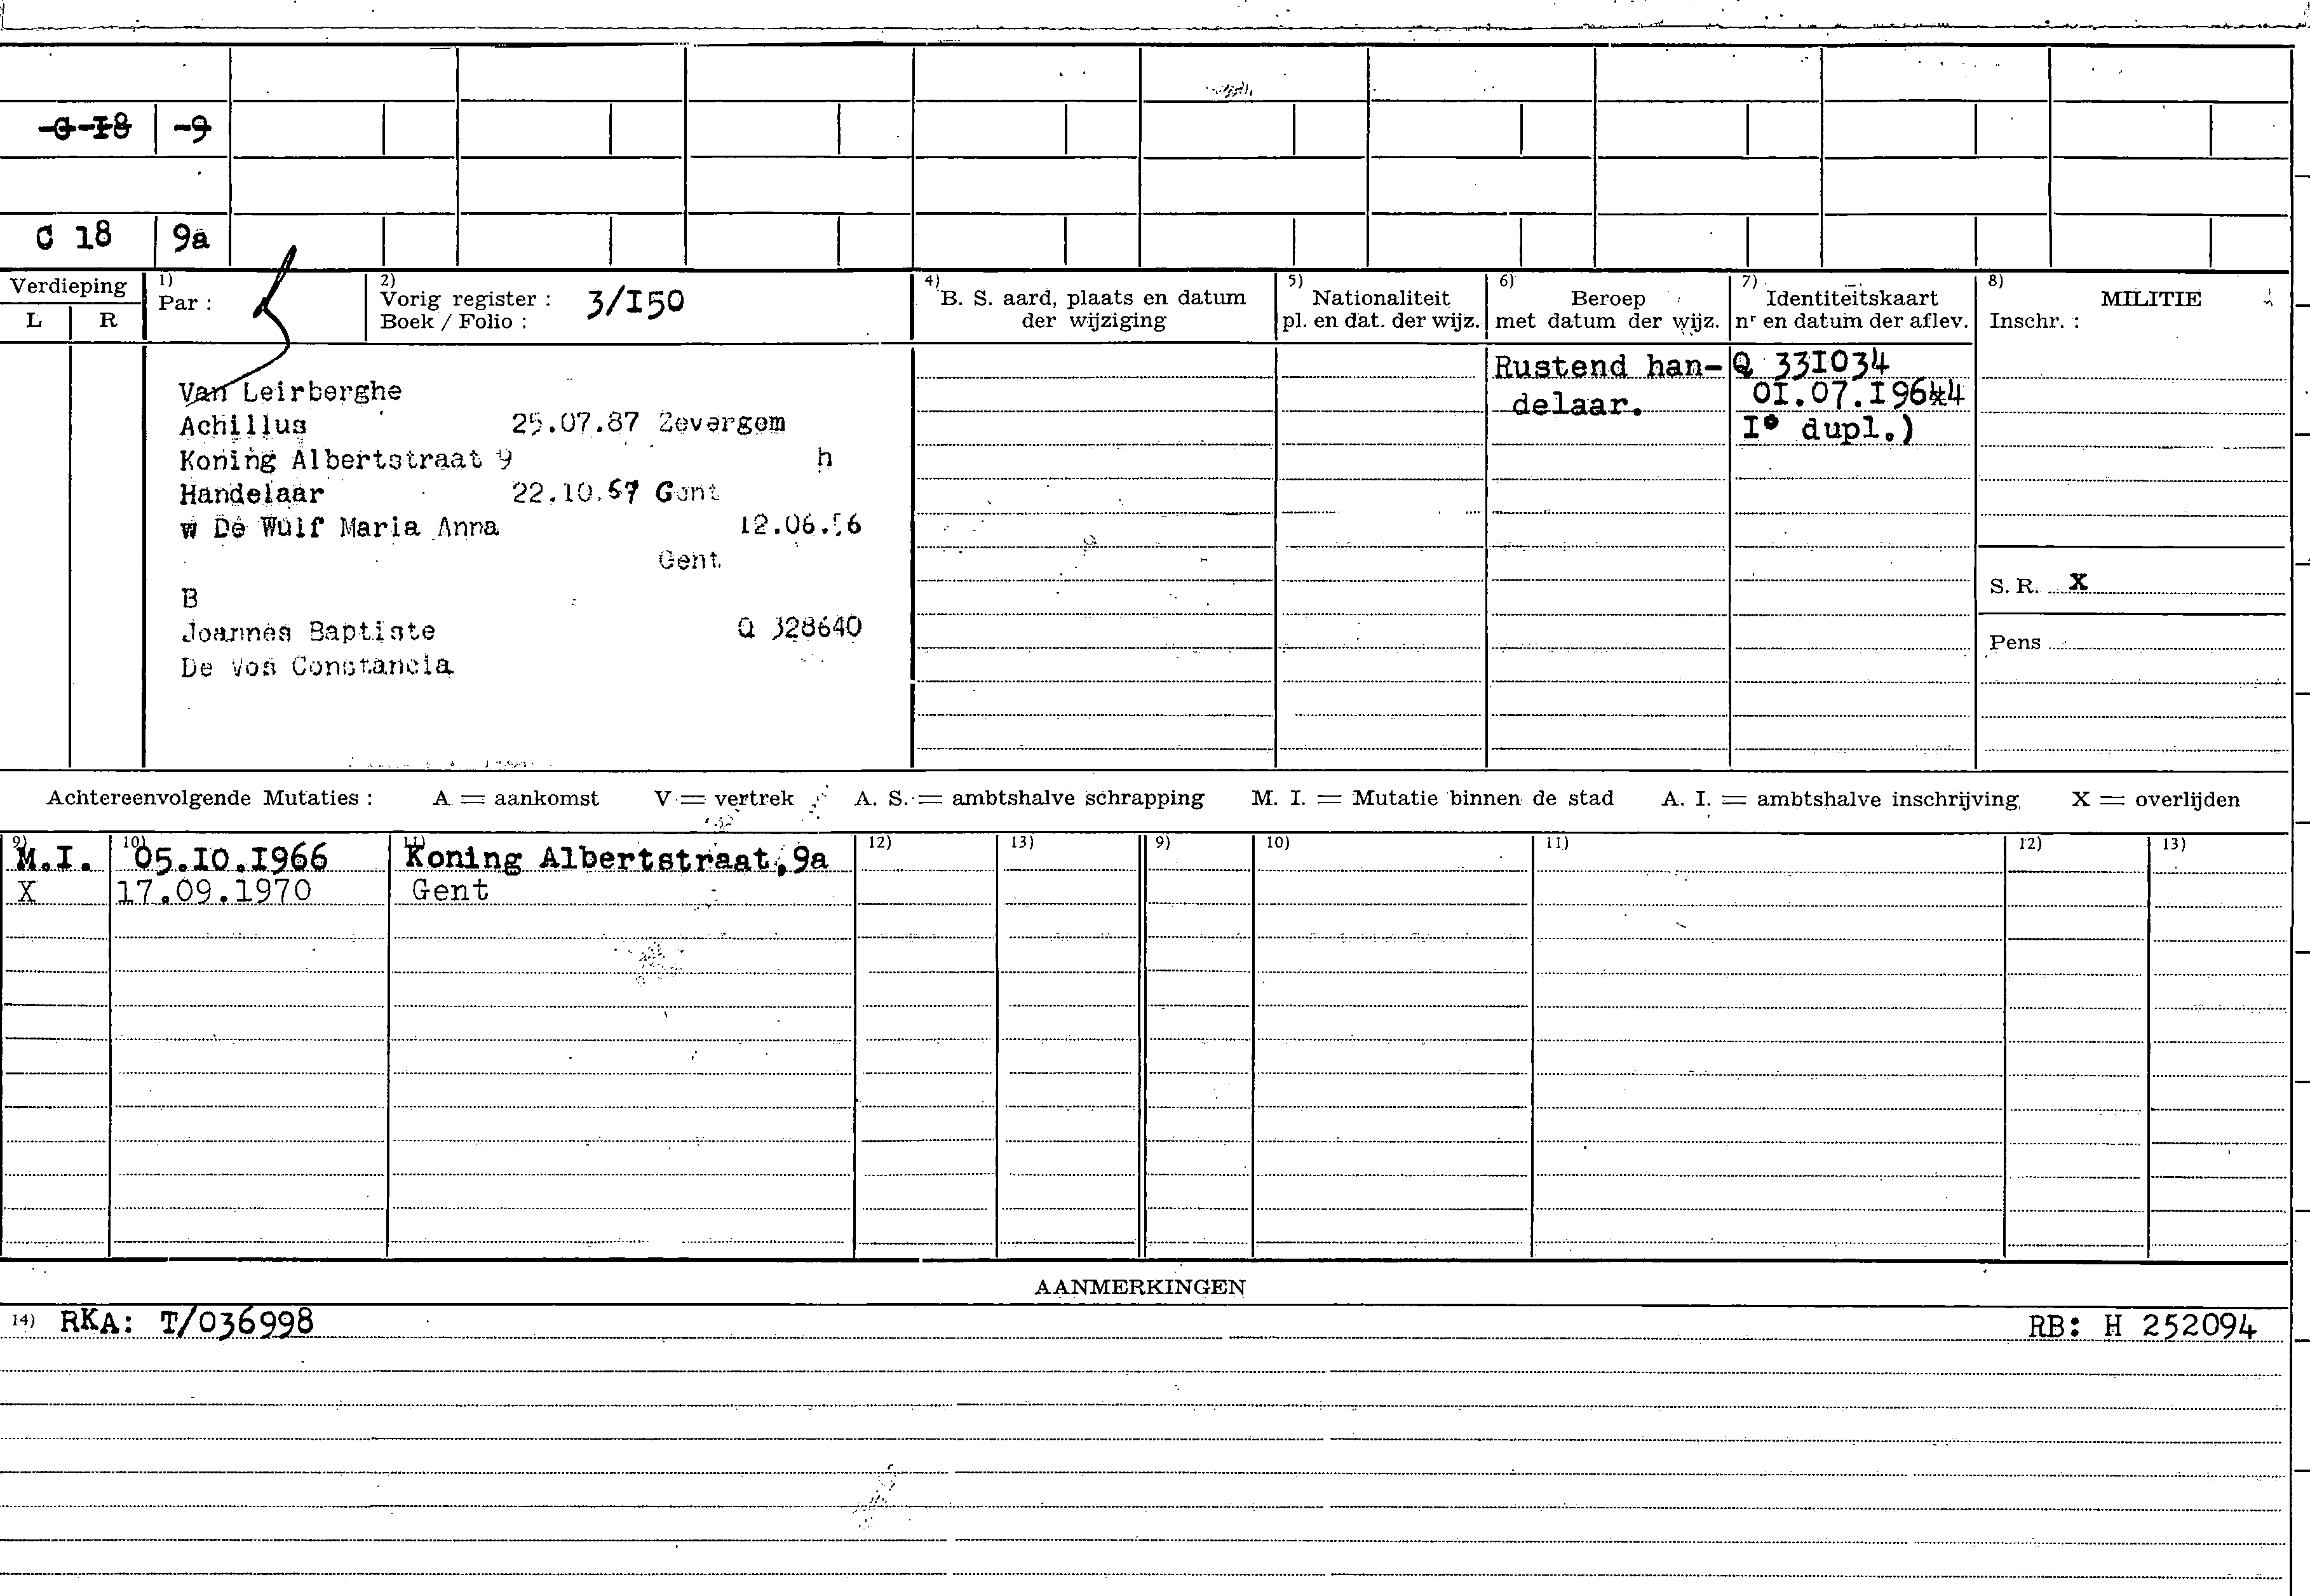 C-18 -9
C 18 9a
Verdieping
L R
1) Par :
2) Vorig register : 3/I50
Boek / Folio :
4) B. S. aard, plaats en datum
der wijziging
5) Nationaliteit
pl. en dat. der wijz.
6) Beroep
met datum der wijz.
7) Identiteitskaart
nr en datum der aflev.
8) MILITIE
Inschr. :
Rustend han-
delaar.
Q 33I034
0I.07.I964
I° dupl.)
Van Leirberghe
Achillus 25.07.87 Zevergem
Koning Albertstraat 9 h
Handelaar 22.10.57 Gent
w De Wulf Maria Anna 12.06.
Gent
B
Joannes Baptiste Q 328640
De Vos Constancia
S. R. X
Pens
Achtereenvolgende Mutaties : A = aankomst V = vertrek A. S. = ambtshalve schrapping M. I. = Mutatie binnen de stad A. I. = ambtshalve inschrijving X = overlijden
9) 10) 11) 12) 13) 9) 10) 11) 12) 13)
M.I. 05.I0.I966 Koning Albertstraat,9a
X 17.09.1970 Gent
AANMERKINGEN
14) RKA: T/036998 RB: H 252094